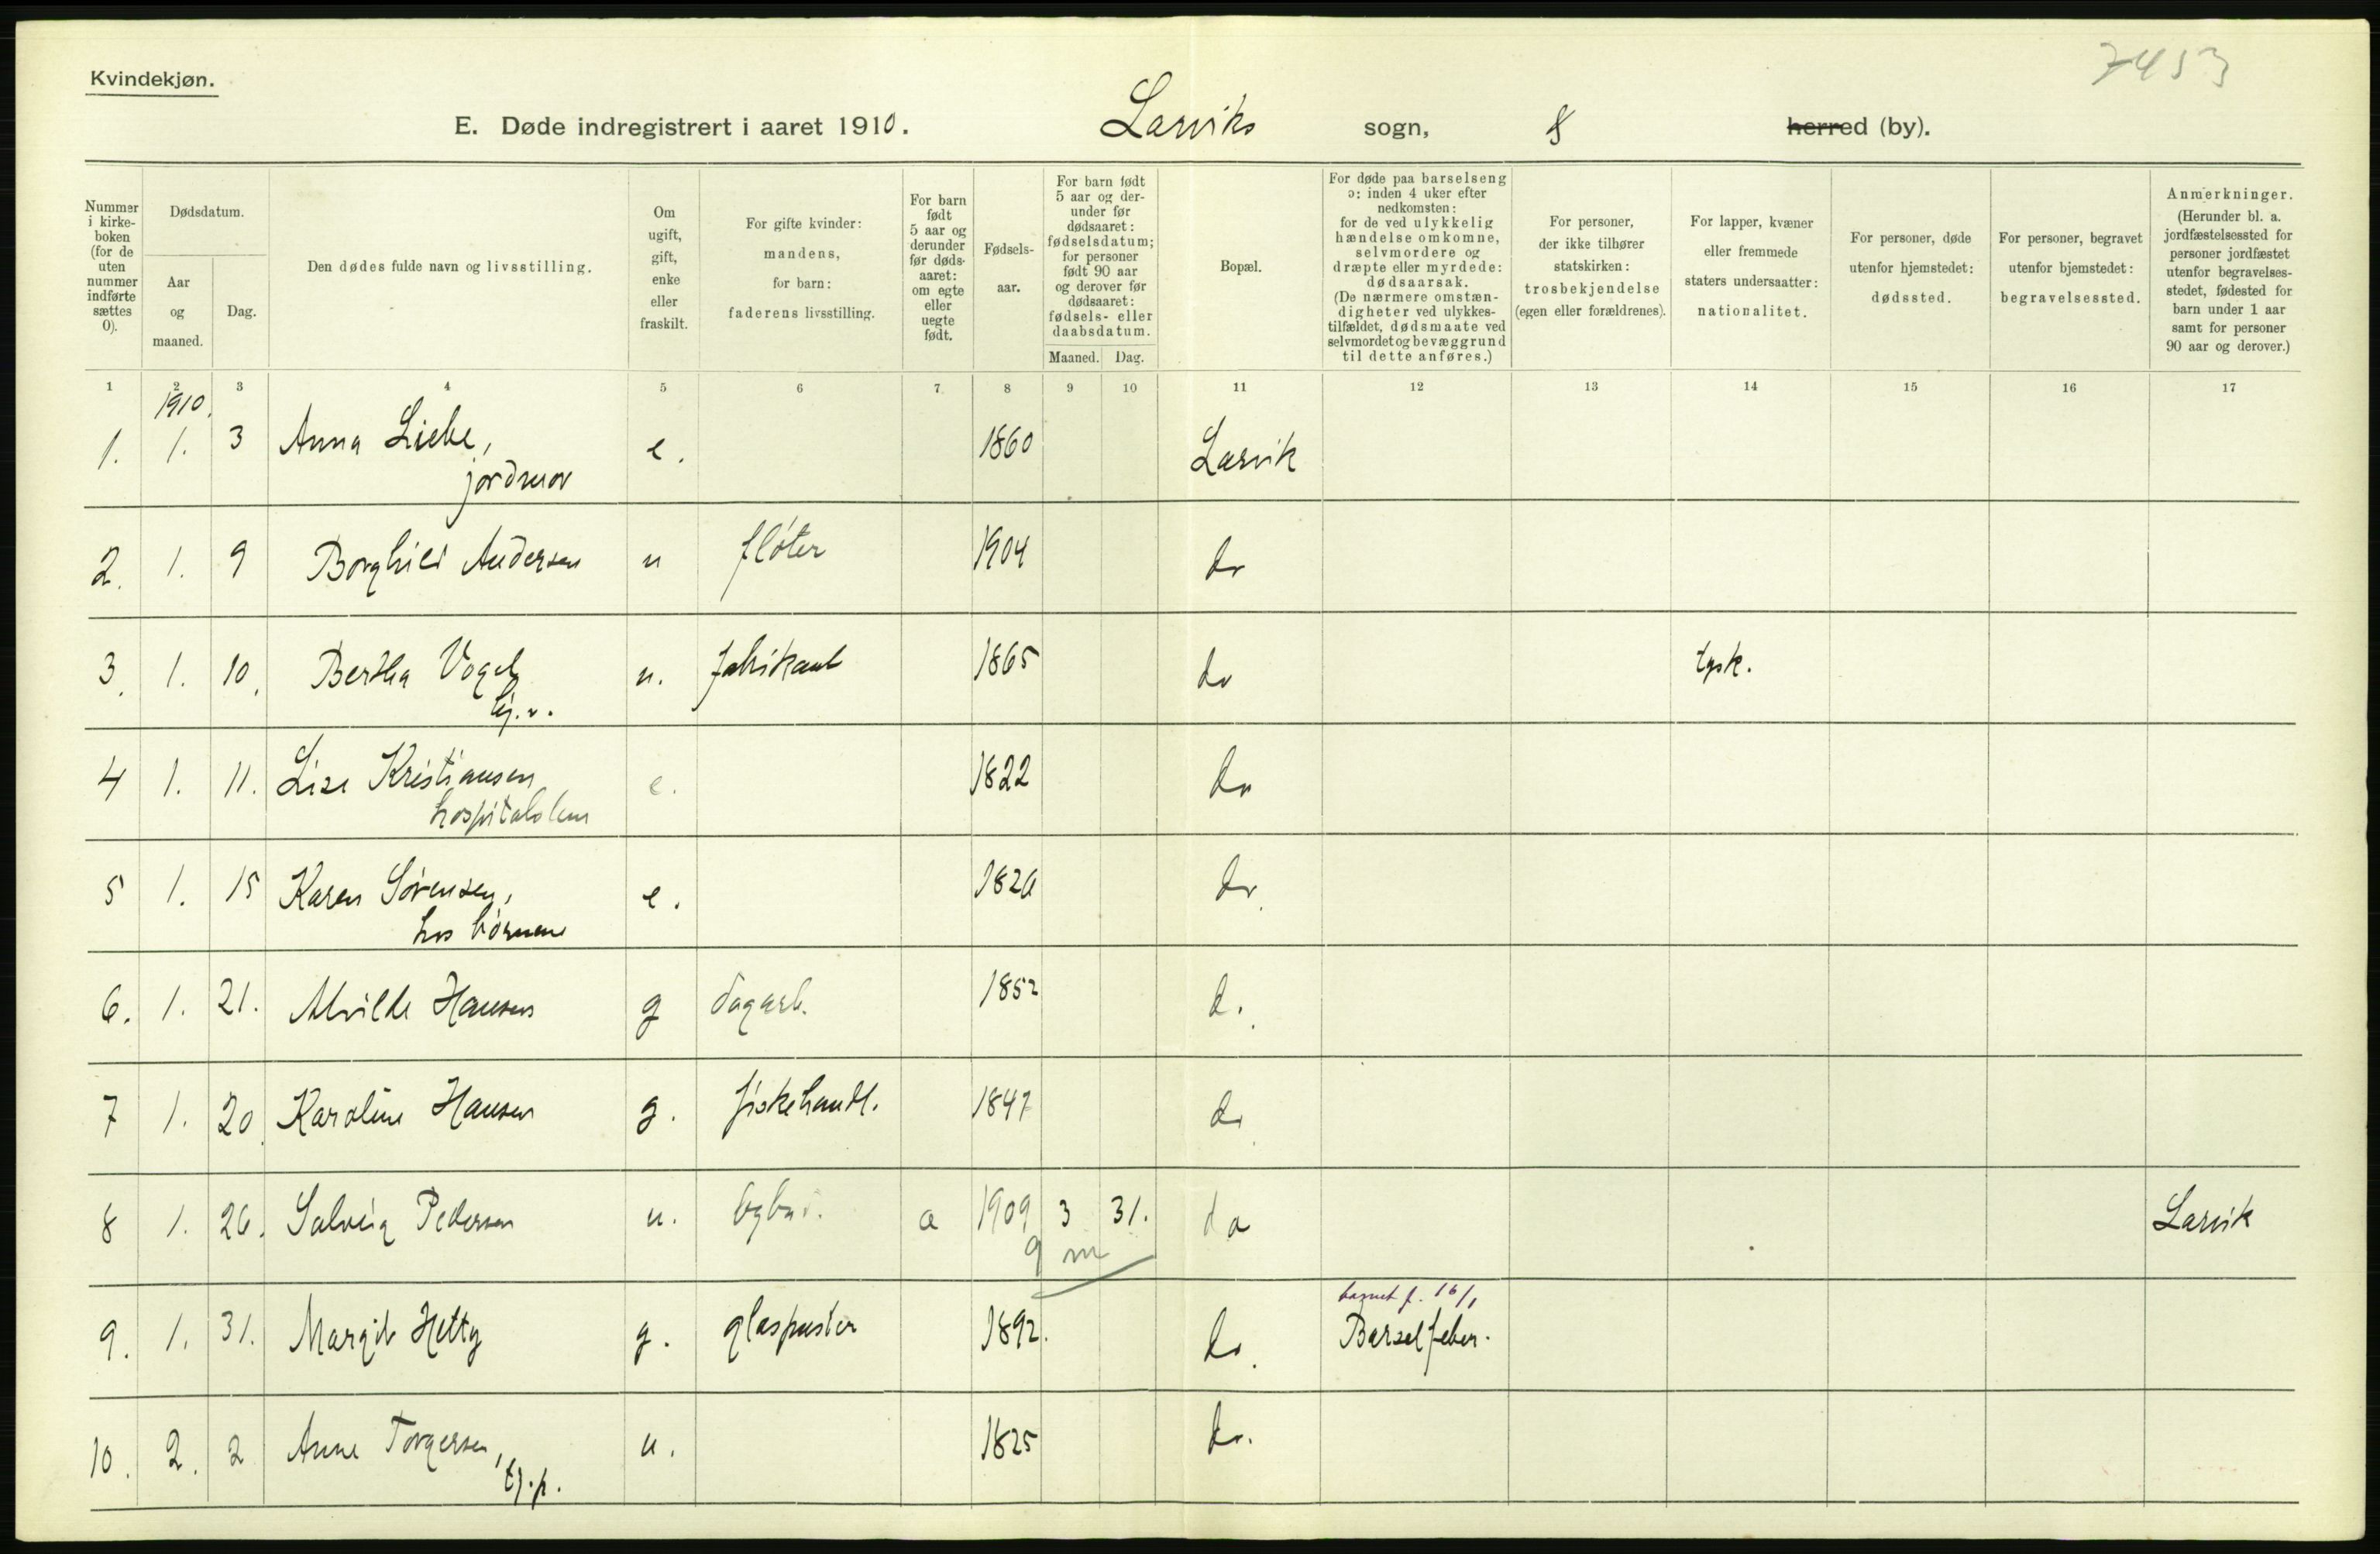 7453
Kvindekjøn.
E. Døde indregistrert i aaret 1910. Larviks sogn, herred (by).
Nummer i kirkeboken (for de uten nummer indførte sættes 0).
Dødsdatum.
Aar og maaned.
Dag.
Den dødes fulde navn og livsstilling.
Om ugift, gift, enke eller fraskilt.
For gifte kvinder: mandens, for barn: faderens livsstilling.
For barn født 5 aar og derunder før dødsaaret: om egte eller uegte født.
Fødselsaar.
For barn født 5 aar og derunder før dødsaaret: fødselsdatum; for personer født 90 aar og derover før dødsaaret: fødsels- eller daabsdatum.
Maaned. Dag.
Bopæl.
For døde paa barselseng ɔ: inden 4 uker efter nedkomsten: for de ved ulykkelig hændelse omkomne, selvmordere og dræpte eller myrdede: dødsaarsak. (De nærmere omstændigheter ved ulykkestilfældet, dødsmaate ved selvmordet og bevæggrund til dette anføres.)
For personer, der ikke tilhører statskirken: trosbekjendelse (egen eller forældrenes).
For lapper, kvæner eller fremmede staters undersaatter: nationalitet.
For personer, døde utenfor hjemstedet: dødssted.
For personer, begravet utenfor hjemstedet: begravelsessted.
Anmerkninger. (Herunder bl. a. jordfæstelsessted for personer jordfæstet utenfor begravelsesstedet, fødested for barn under 1 aar samt for personer 90 aar og derover.)
1 2 3 4 5 6 7 8 9 10 11 12 13 14 15 16 17
1910.
1. 1. 3 Anna Liebe, e. 1860 Larvik
jordmor
2. 1. 9 Borghild Andersen u fløter 1904 do
3. 1. 10. Bertha Vogel u. fabrikant 1865 do tysk.
4 1. 11. Lise Kristiansen e. 1822 do
hospitalslem
5 1. 15 Karen Sørensen, e. do
hos børnene
6. 1. 21. Alvilde Hansen g dagarb. 1852 do
7 1. 20. Karoline Hansen g. fiskehandl. 1847 do
8 1. 26. Solveig Pedersen u. 1909 3 31. do Larvik
9 m
barnet f. 16/1
9. 1. 31. Margit Hetty g. glaspuster 1892. do. Barselfeber.
10. 2. 2 Anne Torgersen, u. 1825 do.
tj.p.